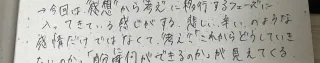 →今回は"感想"から考えに移行するフェーズに
入ってきている感じがする。悲しい、辛い、のような
感情だけではなくて、考え?「これからどうしていき
たいのか」「何ができるのか」が見えてくる。